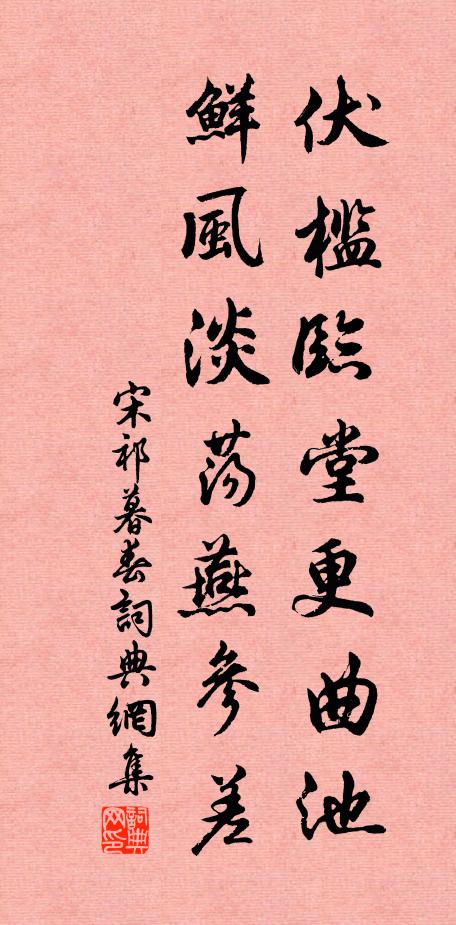 伏檻臨堂更曲池
鮮風淡蕩燕參差
宋祁暮春詞典網集
詞典网印